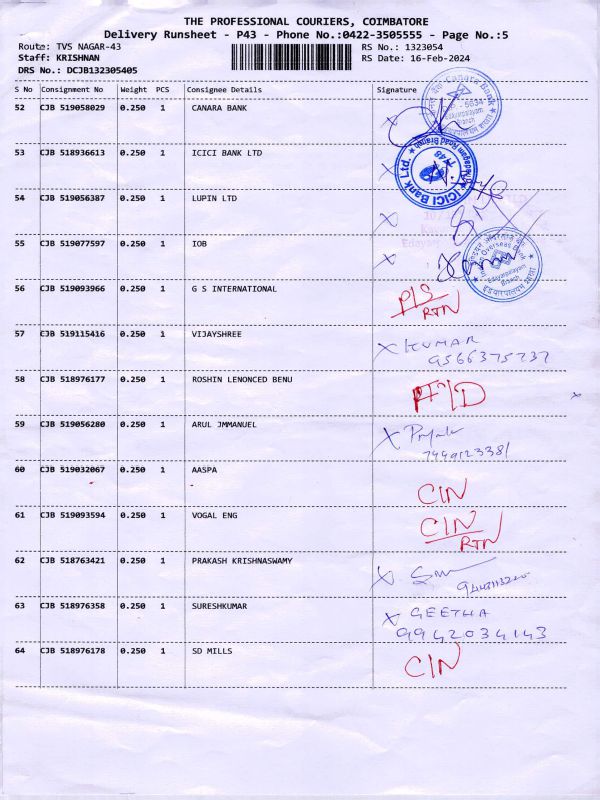 THE PROFESSIONAL COURIERS, COIMBATORE
Delivery Runsheet - P43 - Phone No.:0422-3505555 - Page No.:5
Route: TVS NAGAR-43 RS No.: 1323054
Staff: KRISHNAN RS Date: 16-Feb-2024
DRS No.: DCJB132305405
S No Consignment No Weight PCS Consignee Details Signature
52 CJB 519058029 0.250 1 CANARA BANK
Canara Bank
53 CJB 518936613 0.250 1 ICICI BANK LTD
ICICI Bank Ltd.
54 CJB 519056387 0.250 1 LUPIN LTD
55 CJB 519077597 0.250 1 IOB
Overseas Bank
Edayarpalayam
Branch
56 CJB 519093966 0.250 1 G S INTERNATIONAL
RTN
57 CJB 519115416 0.250 1 VIJAYSHREE X KUMAR
9566375737
58 CJB 518976177 0.250 1 ROSHIN LENONCED BENU
59 CJB 519056280 0.250 1 ARUL JMMANUEL X
60 CJB 519032067 0.250 1 AASPA CIN
61 CJB 519093594 0.250 1 VOGAL ENG CIN
RTN
62 CJB 518763421 0.250 1 PRAKASH KRISHNASWAMY X
63 CJB 518976358 0.250 1 SURESHKUMAR X GEETHA
9942034143
64 CJB 518976178 0.250 1 SD MILLS CIN